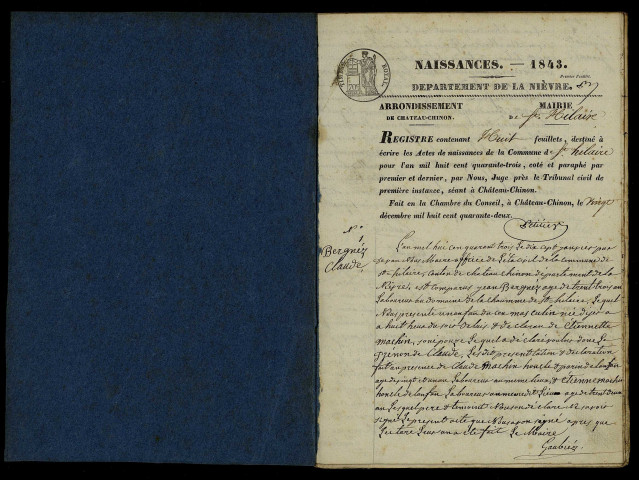 NAISSANCES. — 1843.
Premier Feuillet.
DEPARTEMENT DE LA NIÈVRE.
ARRONDISSEMENT MAIRIE
DE CHATEAU-CHINON. DE St. Hilaire
REGISTRE contenant Huit feuillets, destiné à
écrire les Actes de naissances de la Commune de St. hilaire
pour l'an mil huit cent quarante-trois, coté et paraphé par
premier et dernier, par Nous, Juge près le Tribunal civil de
première instance, séant à Château-Chinon.
Fait en la Chambre du Conseil, à Château-Chinon, le Vingt
décembre mil huit cent quarante-deux.
No. 1
Bergnéz
Claude
L'an mil hui con quarent trois le dix sept
Nous Maire officée de la commune de
St. hilaire, canton de chateau chinon département de la
Nievre, est comparus jean Bergnéz age de trent trois an
Laboureux au domaine de la chaumme de St. hilaire, Lequel
Nous presenté un enfan du masculin née
a huit heux du soir de luis & de Etiennette
machin, son epouze Lequel a déclaré vouloir donné Le
prenon de Claude, Lesdit presentation & declaration
fait en presence de Claude machin honcle de lenfan
age de vingt Laboureux au meme lieux, & Etienne machin
honcle de lenfan Laboureux au meme dit Lieux age de trent
an Lesquel pere & temoins Nous on declaré ne savoir
signé Le present acte que Nous avon signé apres que
Lecture Leur an a ete fait Le Maire
Gaubiér